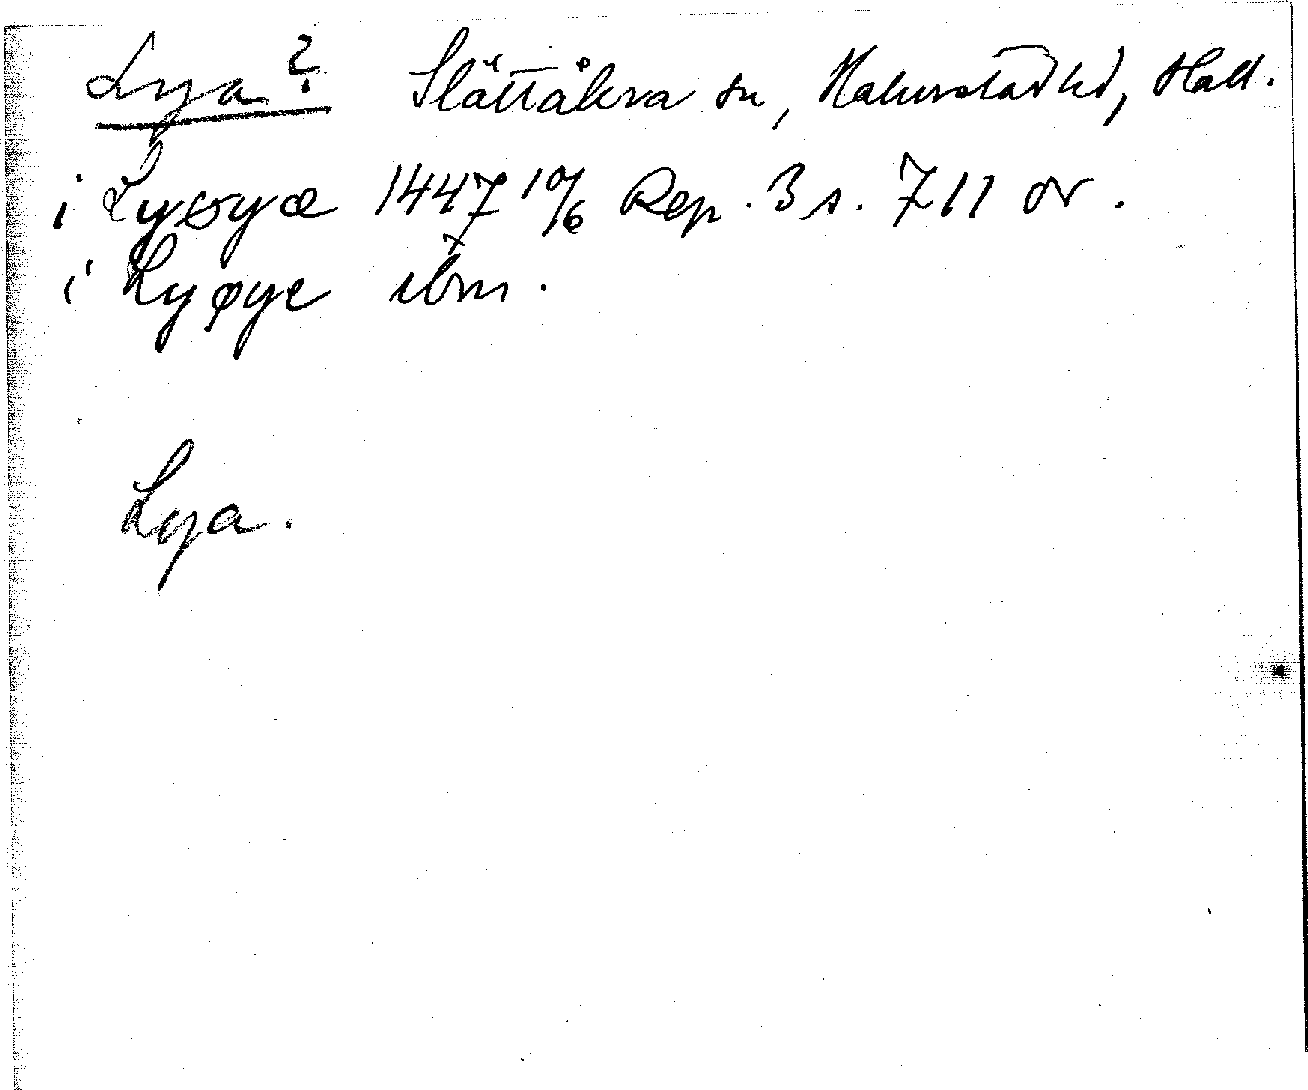 Lya? Slättåkra sn, Halmstad hd, Hall.
i Lyøyæ 1447 10/6 Rep. 3 s. 711 or.
i Lyøye ibm.
Lya.